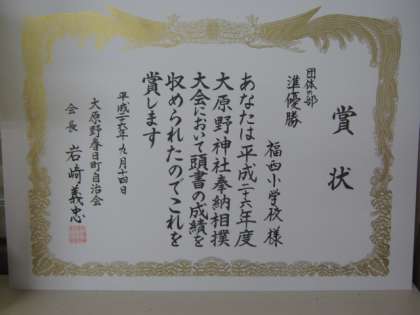 賞状
団体の部
準優勝
福西小学校 様
あなたは平成二十六年度
大原野神社奉納相撲
大会において頭書の成績を
収められたのでこれを
賞します
平成二十六年九月十四日
大原野春日町自治会
会長 岩崎義忠